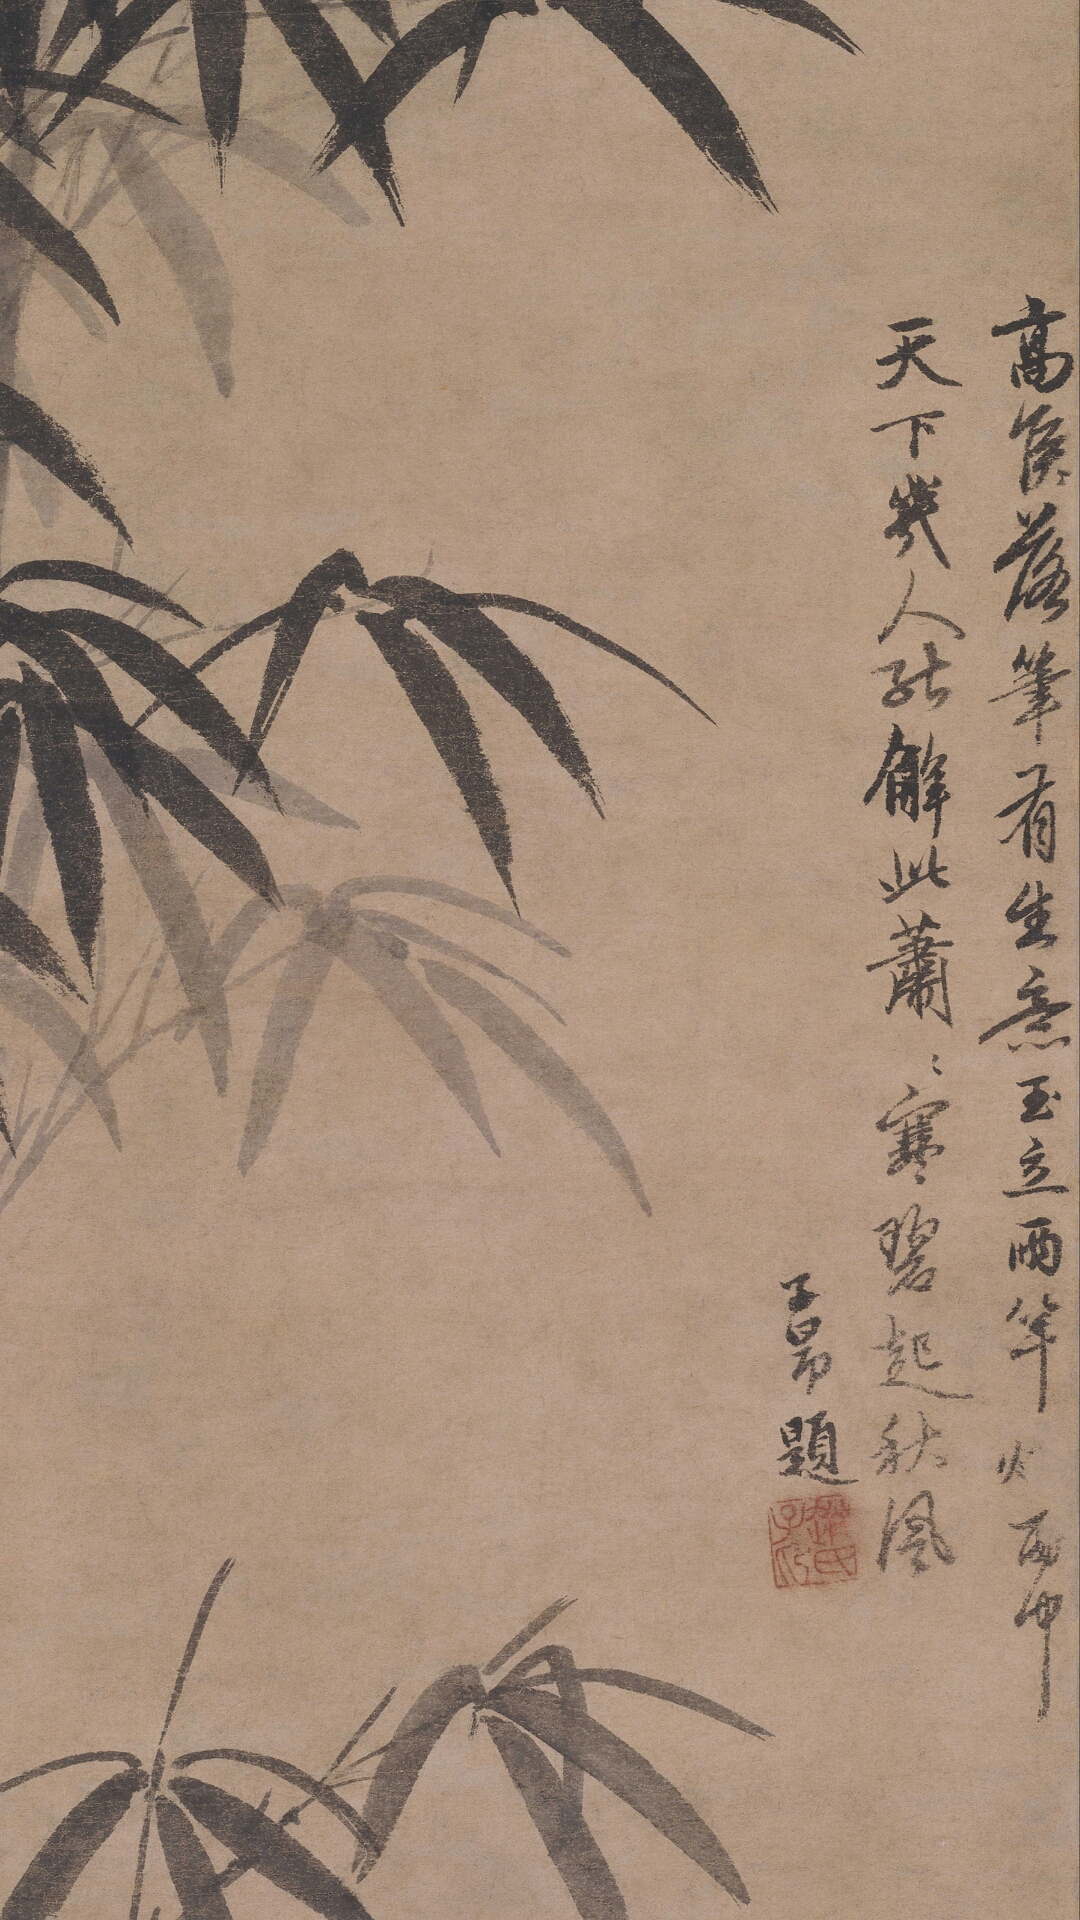 高侯落筆有生意玉立兩竿煙雨中
天下幾人能解此蕭〻寒碧起秋風
子昂題
趙氏子昂